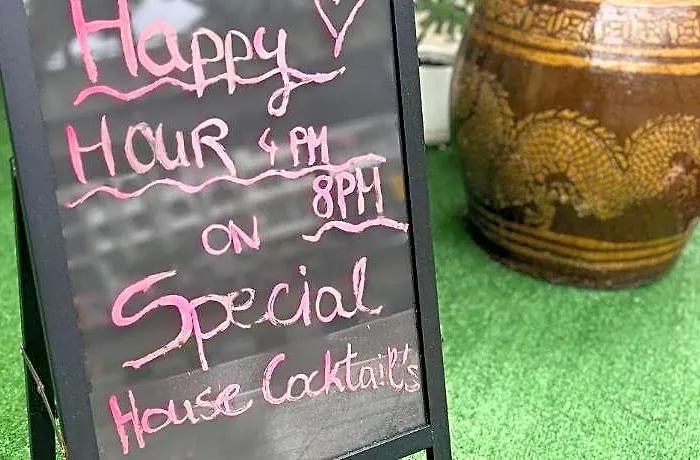 Happy
HOUR 4 PM
8PM
ON
Special
House Cocktail's